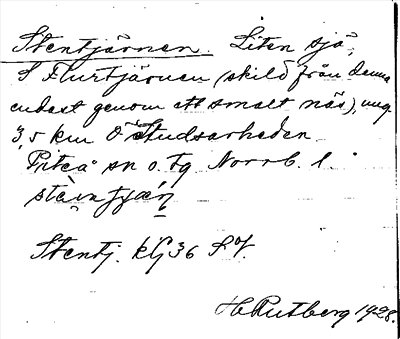 Stentjärnen. Liten sjö,
S Flurtjärnen (skild från denna
endast genom ett smalt näs), ung.
3,5 km Ö Studsarheden.
Piteå sn o. tg Norrb. l.
Stentj. kG36 SV.
H Rutberg 1928.